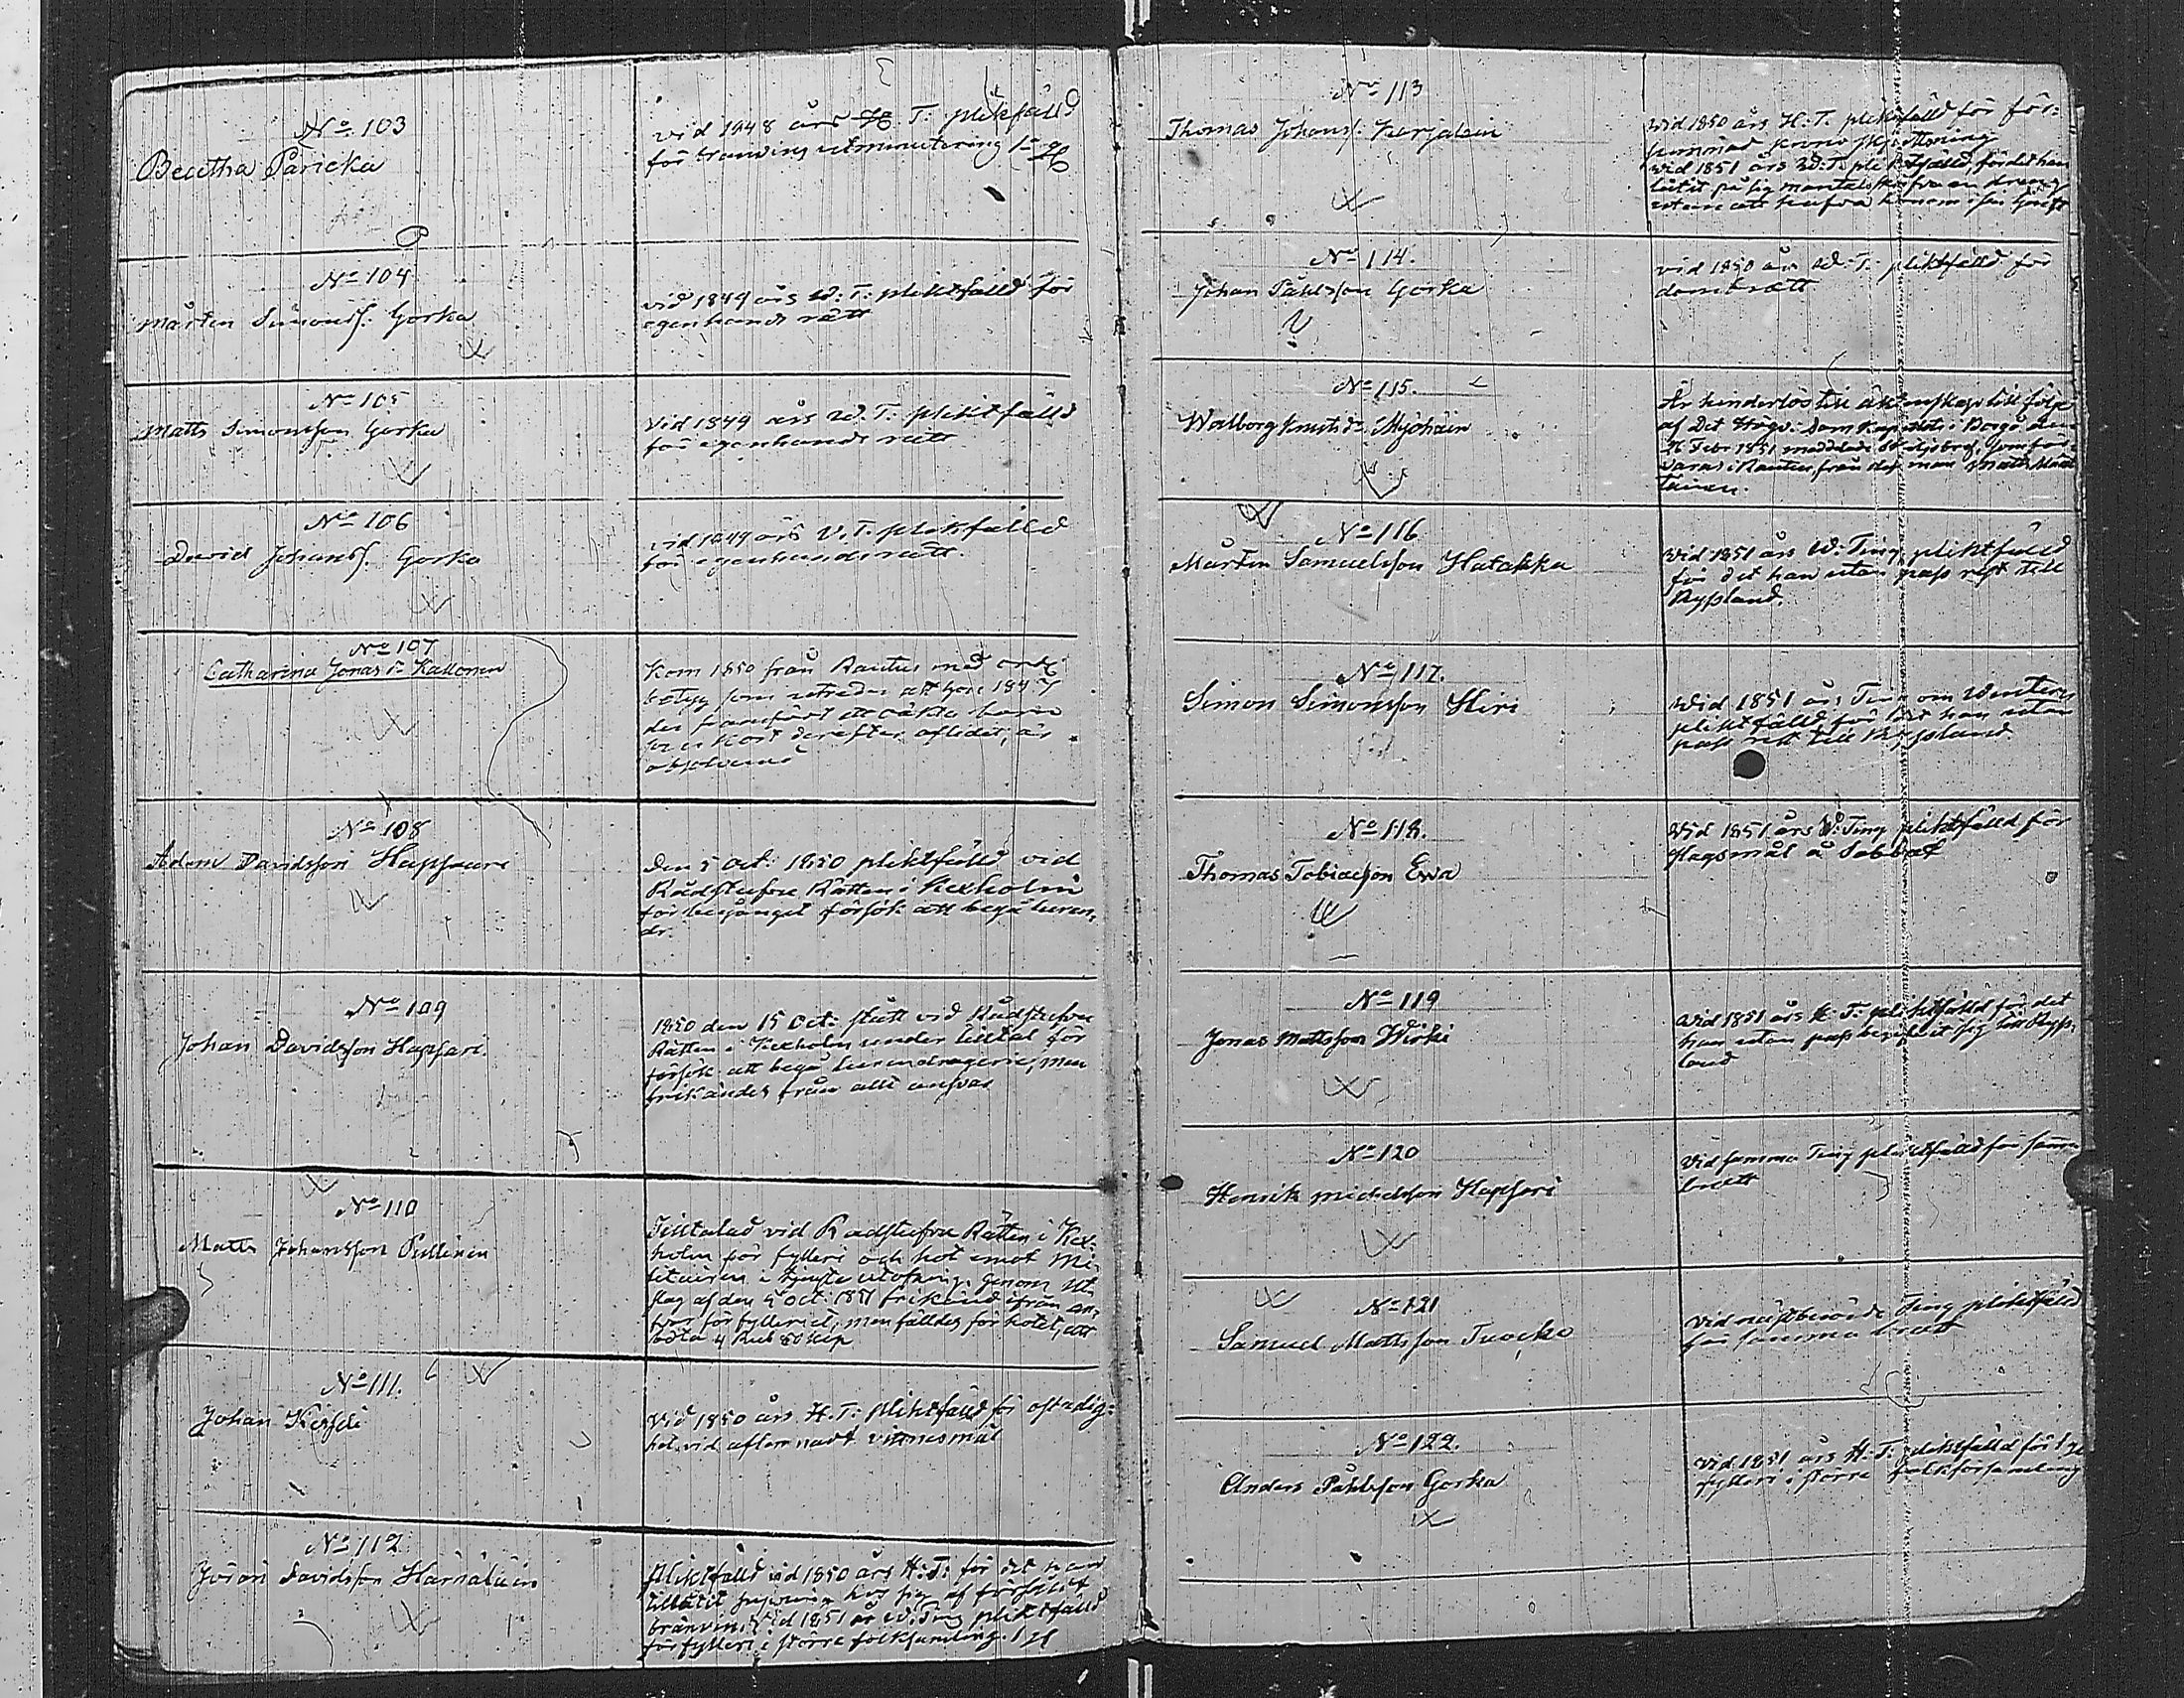 No 103
Beatha Paricka
vid 1848 års T: pliktfälld
för bränvins utminutering 1a
No 104
Mårten Simonss. Gorka
vid 1849 års W: T: pliktfälld för
egenhands rätt
No 105
Matts Simonsson Gorka
Vid 1849 års W. T: pliktfälld
för egenhands rätt
No 106
David Johanss. Gorka
vid 1849 års V. T. pliktfälld
för egenhandsrätt.
No 107
Catharina Jonas dr Kallonen
Kom 1850 från Rautus med
betyg som utreder att hon 1847
der framfört ett oäkta barn
som kort derefter aflidit, är
absolverad
No 108
Adam Davidsson Hapsaari
Den 5 Oct: 1850 pliktfälld vid
Rådstufvu Rätten i Kexholm
för begånget försök att begå
No 109
Johan Davidsson Hapsari
1850 den 15 Oct: stått vid Rådstufvu
Rätten i Kexholm under tilltal för
försök att begå men
frikändes från allt ansvar
No 110
Matts Johansson Pullinen
Tilltalad vid Rådstufvu Rätten i Kex-
holm för fylleri och hot emot Mi-
litairen i tjenste utöfning. genom ut-
slag af den 4 Oct: 1851 frikänd ifrån an-
svar för fylleriet, men fälldes för hotet, att
böta 4 Rub 80 kop
No 111.
Johan Kersli
Vid 1850 års H. T: pliktfälld för ostadig-
het vid aflemnadt vittnesmål
No 112
Jöran Davidsson Härmäläin
Pliktfälld vid 1850 års H: T: för det han
tillåtit hos sig af försåldt
bränvin. Vid 1851 års W. Ting pliktfälld
för fylleri i större folksamling. 1
No 113
Thomas Johanss. Karjalain
Vid 1850 års H: T. pliktfälld för för-
summad krono skjutsning
Vid 1851 års W: T. pliktfälld, för det han
låtit på sig mantalsskrifva en dräng
utan att hafva honom i sin tjenst
No 114.
Johan Påhlsson Gorka
vid 1850 års W: T: pliktfälld för
No 115.
Walborg Knuts dr Myöhäin
Är hinderlös till äktenskap till följe
af Det Högv: Dom Kapitlets i Borgå den
26 Febr 1851 meddelade Skiljobref, som för-
varas i Rautus, från dess man Matts
No 116
Mårten Samuelsson Hatakka
Vid 1851 års W: Ting pliktfälld
för det han utan pass rest till
Ryssland.
No 117.
Simon Simonsson Hiri
Vid 1851 års Ting om Winteren
pliktfälld för det han utan
pass rest till Ryssland
No 118.
Thomas Tobiasson Ewa
Vid 1851 års W: Ting pliktfälld för
slagsmål å Sabbat
No 119
Jonas Mattsson Wirki
Vid 1851 års H. T: pliktfälld för det
han utan pass begifvit sig till Ryss-
land
No 120
Henrik Michelsson Hapsari
Vid samma Ting pliktfälld för samma
brott
No 121
Samuel Mattsson Tuocko
Vid nästberörde Ting pliktfälld
för samma brott
No 122.
Anders Påhlsson Gorka
Vid 1851 års H: T: pliktfälld för
fylleri i större folkförsamling